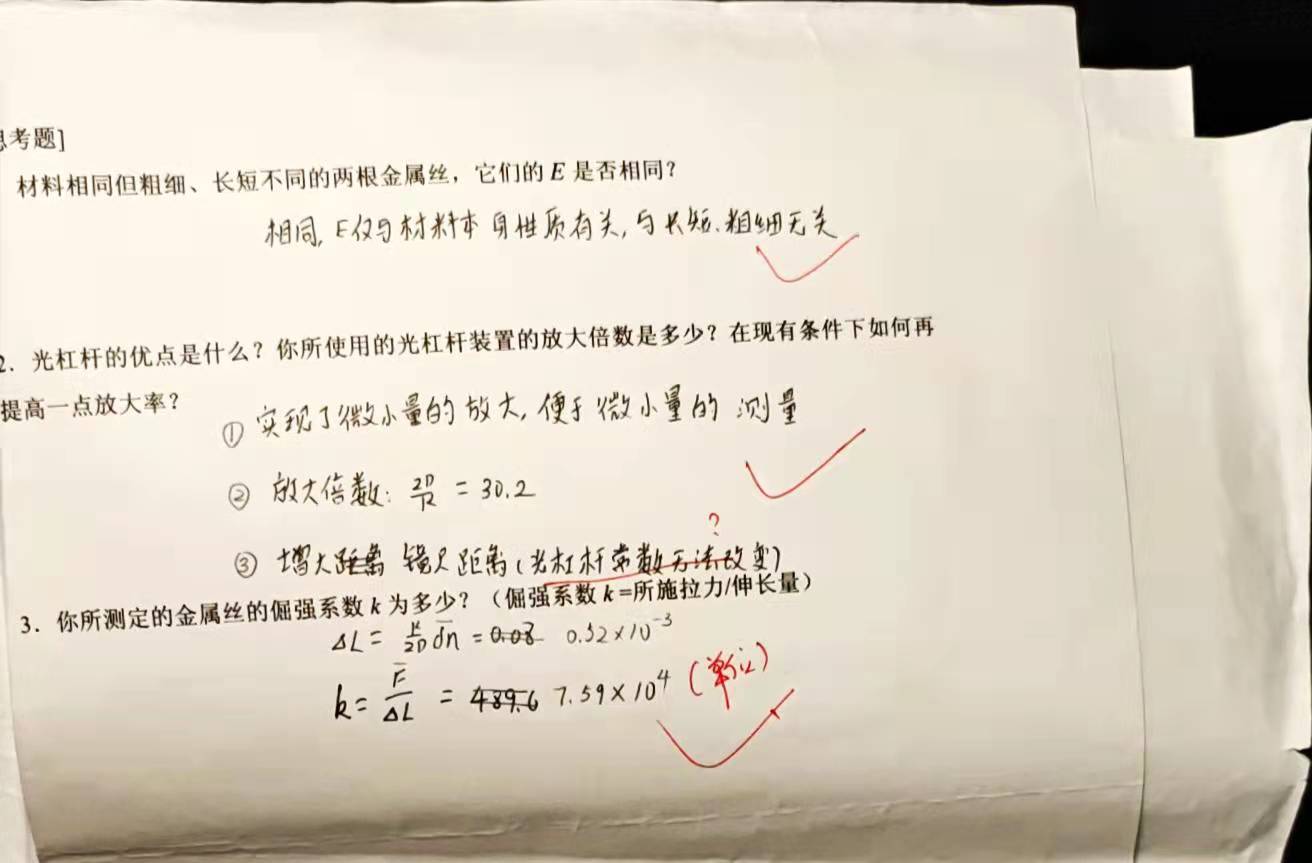 考题]
材料相同但粗细、长短不同的两根金属丝，它们的 E 是否相同？
相同, E仅与材料本身性质有关, 与长短、粗细无关
2. 光杠杆的优点是什么？你所使用的光杠杆装置的放大倍数是多少？在现有条件下如何再
提高一点放大率？
① 实现了微小量的放大, 便于微小量的测量
② 放大倍数: 2D/K = 30.2
?
③ 增大距离 镜尺距离 (光杠杆常数无法改变)
3. 你所测定的金属丝的倔强系数 k 为多少？（倔强系数 k=所施拉力/伸长量）
ΔL = K/2D dn = 0.08 0.52×10⁻³
k = F/ΔL = 489.6 7.59×10⁴ (单位)